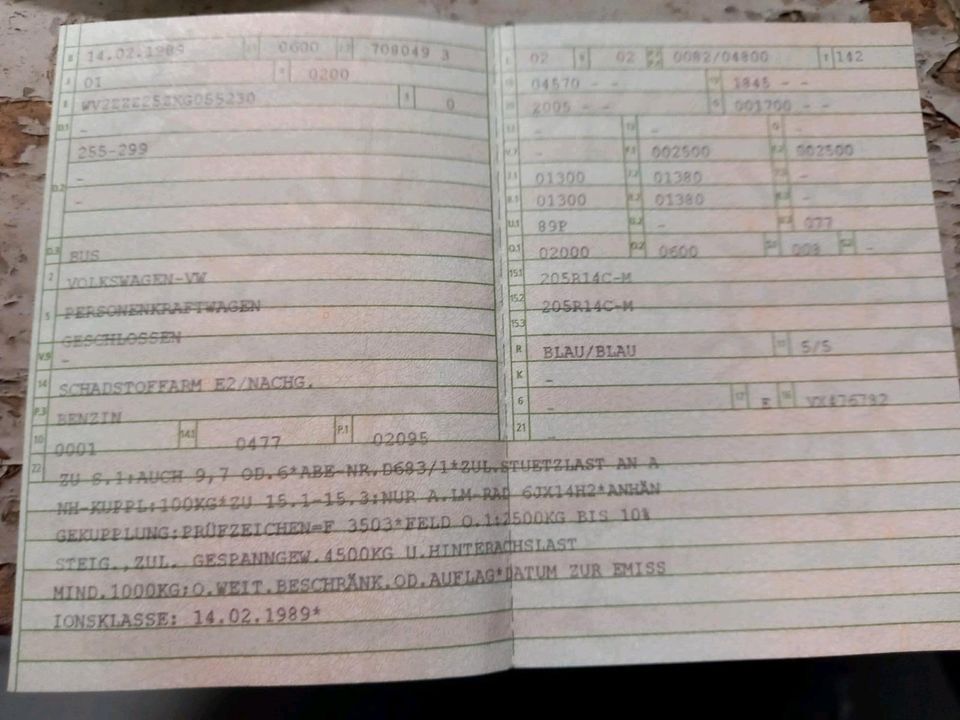 B 14.02.1989 2.1 0600 2.2 708049 3
J 01 4 0200
E WV2ZZZ25ZKG055230 3 0
D.1 -
255-299
D.2 -
D.3 BUS
2 VOLKSWAGEN-VW
5 PERSONENKRAFTWAGEN
GESCHLOSSEN
V.9 -
14 SCHADSTOFFARM E2/NACHG.
P.3 BENZIN
10 0001 14.1 0477 P.1 02095
L 02 9 02 P.2 P.4 0082/04800 T 142
18 04570 - - 19 1845 - -
20 2005 - - G 001700 - -
12 - 13 - Q -
V.7 - F.1 002500 F.2 002500
7.1 01300 7.2 01380 7.3 -
8.1 01300 8.2 01380 8.3 -
U.1 89P U.2 - U.3 077
O.1 02000 O.2 0600 S.1 008 S.2 -
15.1 205R14C-M
15.2 205R14C-M
15.3
R BLAU/BLAU 11 5/5
K -
6 - 17 E 16 VX476792
21 -
22 ZU S.1:AUCH 9,7 OD.6*ABE-NR.D683/1*ZUL.STUETZLAST AN A
NH-KUPPL:100KG*ZU 15.1-15.3:NUR A.LM-RAD 6JX14H2*ANHÄN
GEKUPPLUNG:PRÜFZEICHEN=F 3503*FELD O.1:2500KG BIS 10%
STEIG.,ZUL. GESPANNGEW.4500KG U.HINTERACHSLAST
MIND.1000KG;O.WEIT.BESCHRÄNK.OD.AUFLAG*DATUM ZUR EMISS
IONSKLASSE: 14.02.1989*